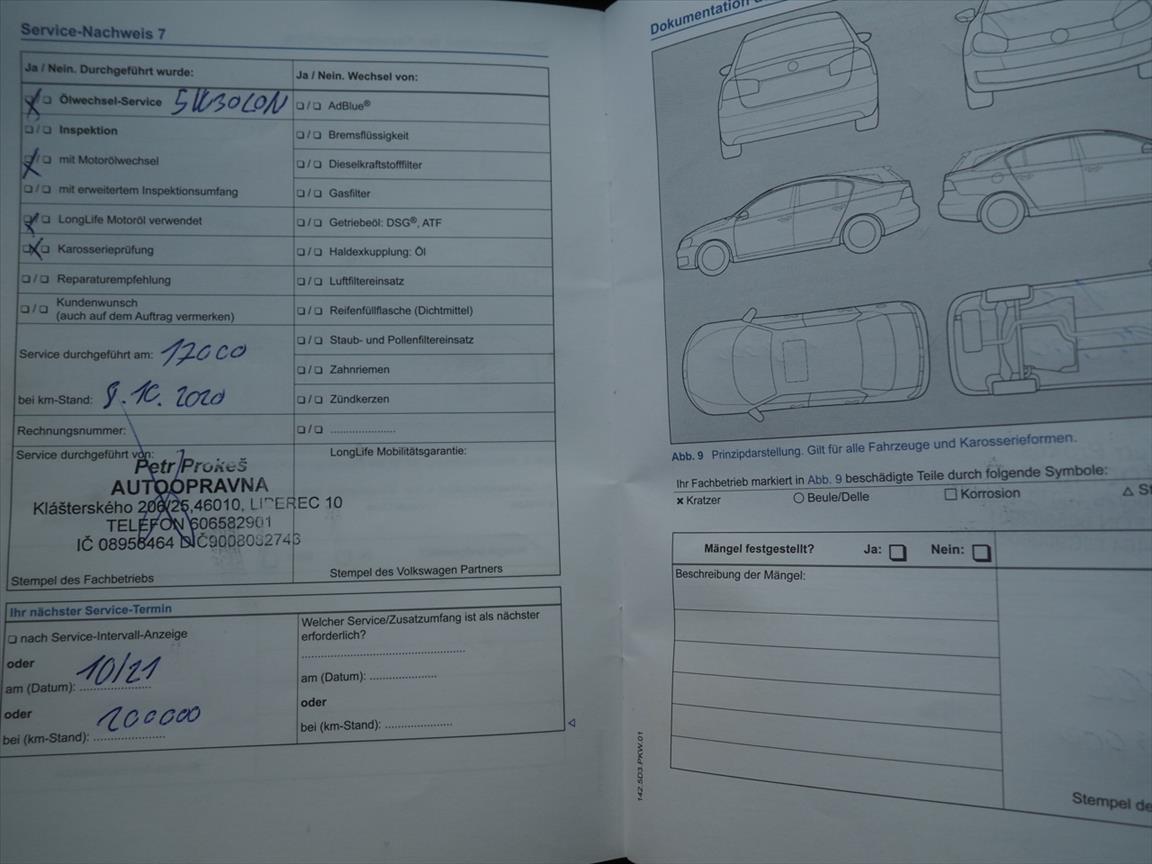 Service-Nachweis 7
Ja / Nein. Durchgeführt wurde:
Ölwechsel-Service
Inspektion
mit Motorölwechsel
mit erweitertem Inspektionsumfang
LongLife Motoröl verwendet
Karosserieprüfung
Reparaturempfehlung
Kundenwunsch
(auch auf dem Auftrag vermerken)
Service durchgeführt am:
bei km-Stand: 8.10.2020
Rechnungsnummer:
Service durchgeführt von:
Petr Prokeš
AUTOOPRAVNA
Klášterského 206/25,46010, LIBEREC 10
TELEFON 606582901
IČ 08958464 DIČ9008082743
Stempel des Fachbetriebs
Ja / Nein. Wechsel von:
AdBlue®
Bremsflüssigkeit
Dieselkraftstofffilter
Gasfilter
Getriebeöl: DSG®, ATF
Haldexkupplung: Öl
Luftfiltereinsatz
Reifenfüllflasche (Dichtmittel)
Staub- und Pollenfiltereinsatz
Zahnriemen
Zündkerzen
LongLife Mobilitätsgarantie:
Stempel des Volkswagen Partners
Ihr nächster Service-Termin
nach Service-Intervall-Anzeige
oder
am (Datum): 10/21
oder
bei (km-Stand): 200000
Welcher Service/Zusatzumfang ist als nächster
erforderlich?
am (Datum):
oder
bei (km-Stand):
Dokumentation
Abb. 9 Prinzipdarstellung. Gilt für alle Fahrzeuge und Karosserieformen.
Ihr Fachbetrieb markiert in Abb. 9 beschädigte Teile durch folgende Symbole:
Kratzer
Beule/Delle
Korrosion
Mängel festgestellt? Ja: Nein:
Beschreibung der Mängel:
Stempel de
142.5D3.PKW.01